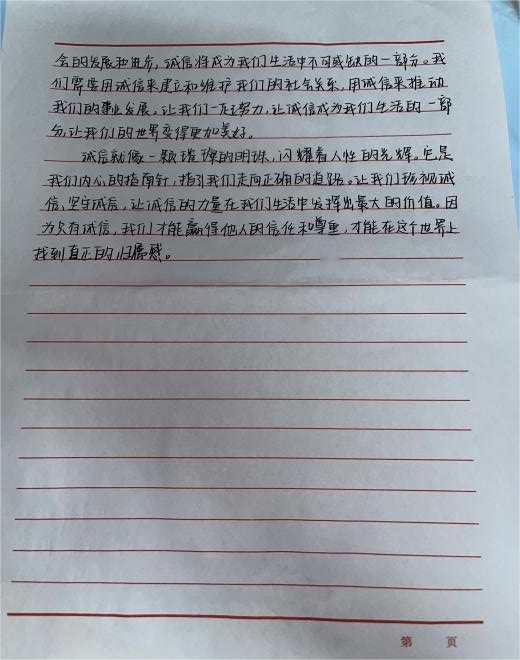 会的发展和进步，诚信将成为我们生活中不可或缺的一部分。我
们需要用诚信来建立和维护我们的社会关系，用诚信来推动
我们的事业发展。让我们一起努力，让诚信成为我们生活的一部
分，让我们的世界变得更加美好。
诚信就像一颗璀璨的明珠，闪耀着人性的光辉。它是
我们内心的指南针，指引我们走向正确的道路。让我们珍视诚
信、坚守诚信，让诚信的力量在我们生活中发挥出最大的价值。因
为只有诚信，我们才能赢得他人的信任和尊重，才能在这个世界上
找到真正的归属感。
第 页